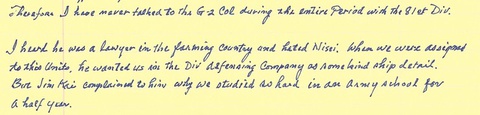 Therefore I have never talked to the G-2 Col during the entire Period with the 81st Div.
I heard he was a lawyer in the farming country and hated Nisei. When we were assigned
to this Units, he wanted us in the Div defensing Company as some kind ship detail.
But Jim Kai complained to him why we studied as hard in an Army school for
a half year.